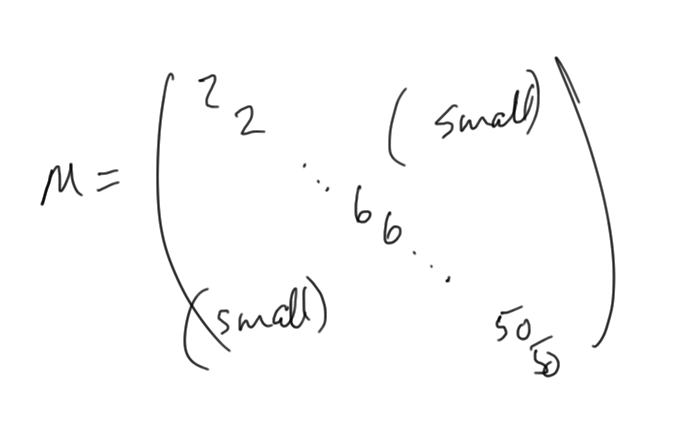 2
2
( small)
M = (
⋱
6
6
⋱
(small)
50
50
)